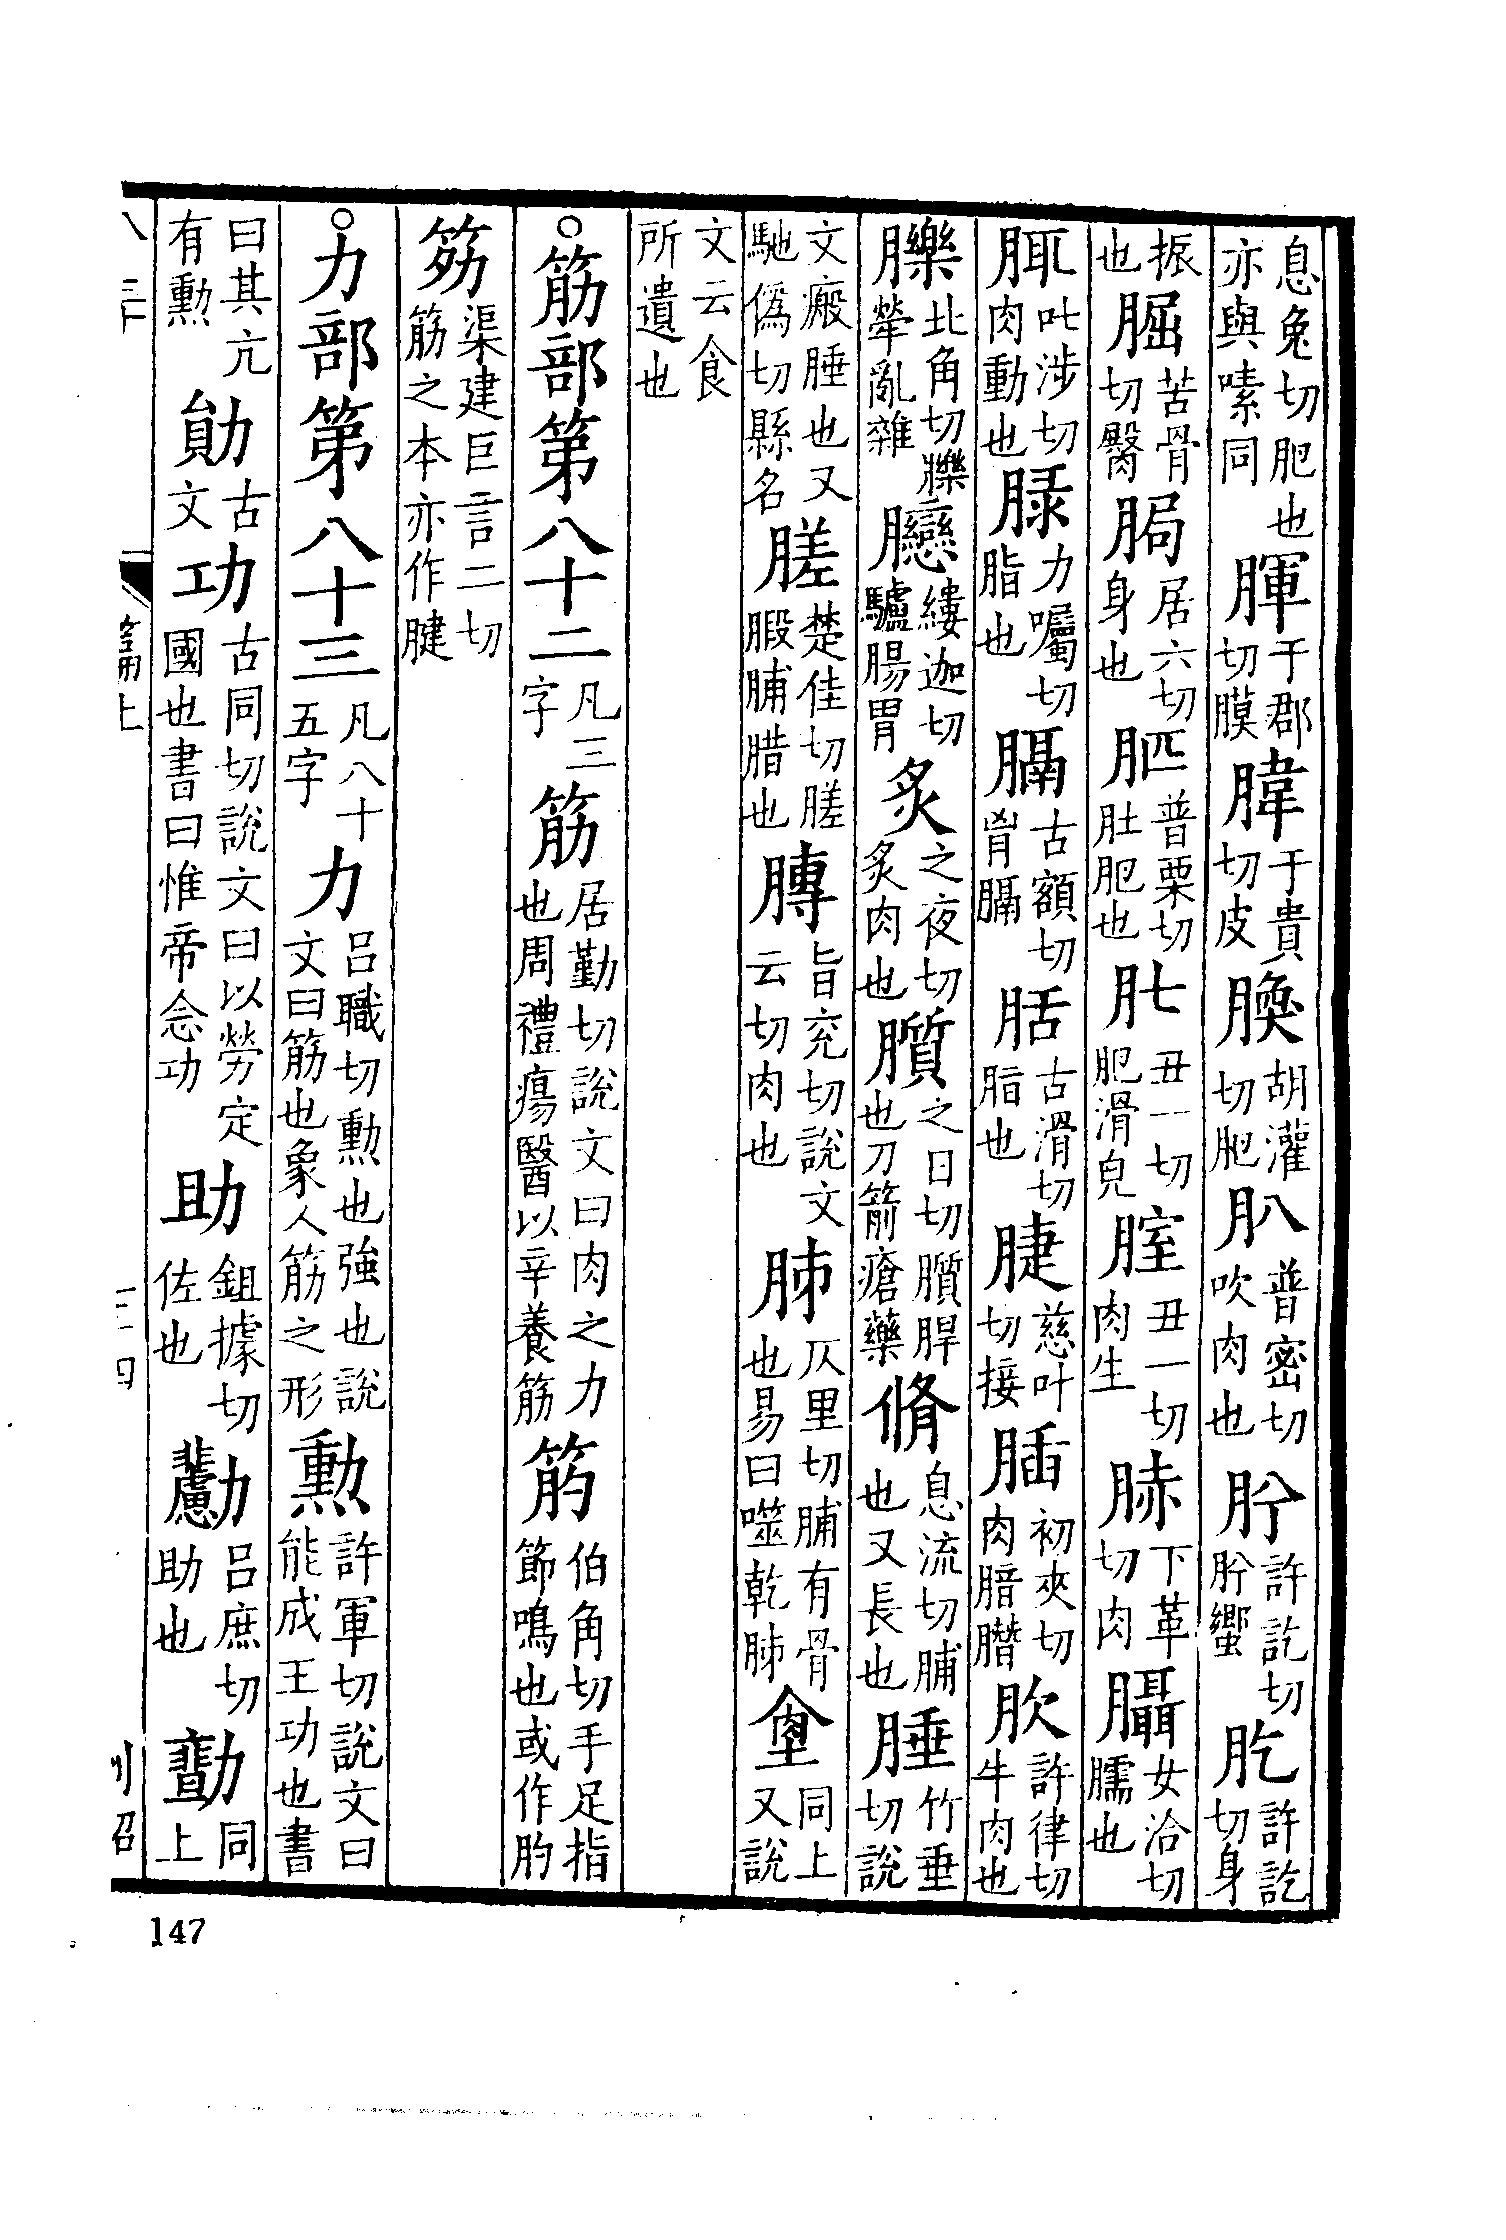 息兔切肥也亦與嗉同䐊于郡切膜䐔于貴切皮䐘胡灌切肥⺼八普密切吹肉也肸許訖切肸蠁肐許訖切身
振也䐇苦骨切臋䏱居六切身也𦙄普栗切肚肥也⺼七丑一切肥滑皃膣丑一切肉生䏮下革切肉𦣀女洽切臑也
䏙吐涉切肉動也䐂力囑切脂也膈古額切胷膈𦛚古滑切脂也脻慈叶切接䐉初夾切肉腤𦠆㰦許律切牛肉也
䟏北角切犖亂雜臠縷迦切驢腸胃炙之夜切炙肉也䑇之日切䑇脟也刀箭瘡藥脩息流切脯也又長也腄竹垂切說
文瘢腄也又馳偽切縣名䐤楚佳切䐤腶脯腊也膞旨兖切說文云切肉也胏仄里切脯有骨也易曰噬乾胏𡎺同上又說
文云食所遺也
○筋部第八十二凡三字筋居勤切說文曰肉之力也周禮瘍醫以辛養筋筋伯角切手足指節鳴也或作肑
笏渠建巨言二切筋之本亦作腱
○力部第八十三凡八十五字力呂職切勳也強也說文曰筋也象人筋之形勳許軍切說文曰能成王功也書
曰其亢有勳勛古文功古同切說文曰以勞定國也書曰惟帝念功助鉏據切佐也勴呂庶切助也𠣊同上
篇上
147